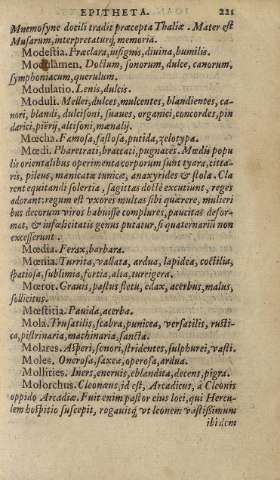 EPITHETA. 221
Mnemosyne docili tradit præcepta Thaliæ. Mater est
Musarum, interpretaturq; memoria.
Modestia. Præclara, insignis, diuina, humilis.
Modulamen. Doctum, sonorum, dulce, canorum,
symphoniacum, querulum.
Modulatio. Lenis, dulcis.
Moduli. Mellei, dulces, mulcentes, blandientes, ca-
nori, blandi, dulcisoni, suaues, organici, concordes, pin
darici, pierij, altisoni, mænalij.
Mœcha. Famosa, fastosa, putida, zelotypa.
Mœdi. Pharetrati, braccati, pugnaces. Mœdi popu
lis orientalibus operimenta corporum sunt tyara, citta-
ris, pileus, manicatæ tunicæ, anaxyrides & stola. Cla
rent equitandi solertia, sagittas dolle excutiunt, reges
adorant: regum est vxores multas sibi quærere, mulieri
bus decorum viros habuisse complures, paucitas defor-
mat, & infœlicitatis genus putatur, si quaternarium non
excesserunt.
Mœdia. Ferax, barbara.
Mœnia. Turrita, vallata, ardua, lapidea, coctilia,
spatiosa, sublimia, fortia, alta, turrigera.
Mœror. Grauis, pastus fletu, edax, acerbus, malus,
sollicitus.
Mœstitia. Pauida, acerba.
Mola. Trusatilis, scabra, punicea, versatilis, rusti-
ca, pistrinaria, machinaria, sancta.
Molares. Asperi, sonori, stridentes, sulphurei, vasti.
Moles. Onerosa, saxea, operosa, ardua.
Mollities. Iners, eneruis, eblandita, decens, pigra.
Molorchus. Cleonæus, id est, Arcadicus, à Cleonis
oppido Arcadiæ. Fuit enim pastor eius loci, qui Hercu
lem hospitio suscepit, rogauitq; vt leonem vastissimum
ibidem